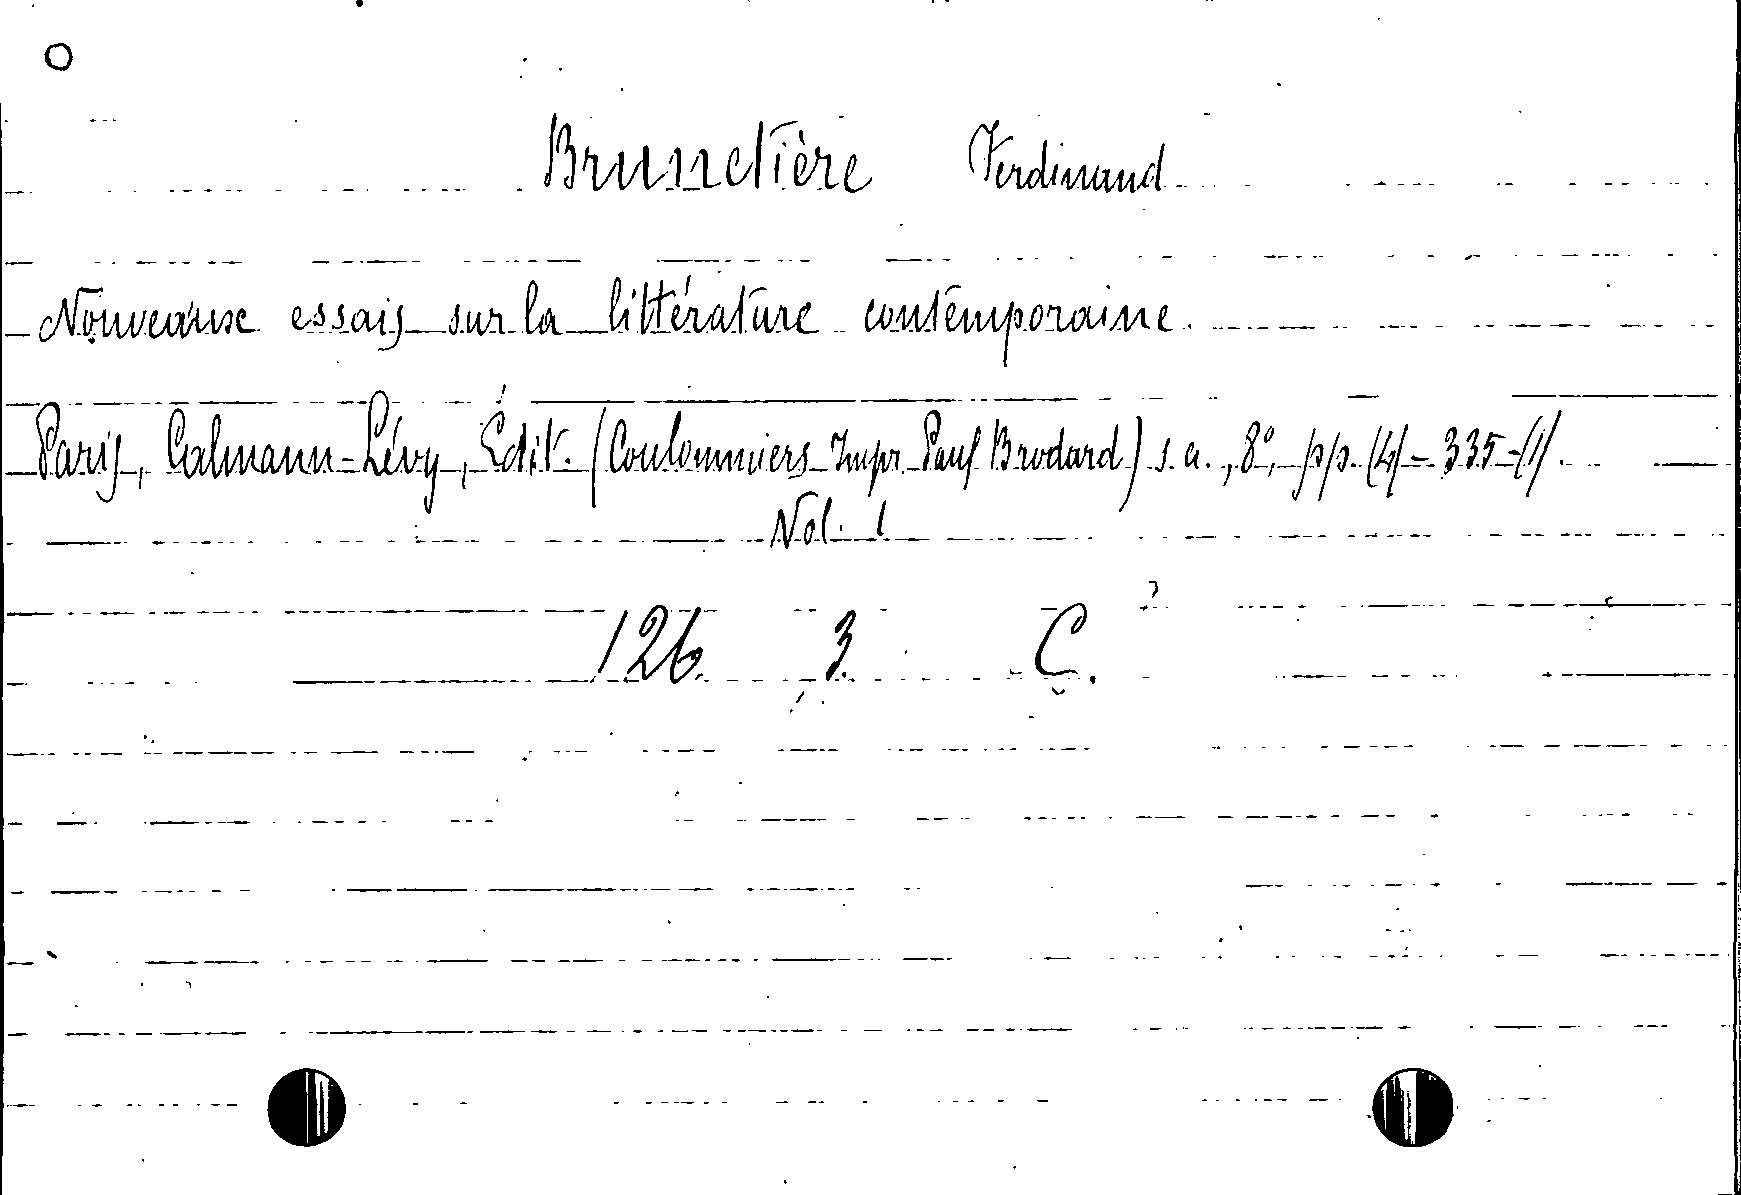 Brunetière Ferdinand
Nouveaux essais sur la littérature contemporaine.
Paris, Calmann-Lévy, Édit. (Coulommiers Impr. Paul Brodard) s. a., 8°, pp. (4) - 335 - (1).
Vol. 1
126. 3. C.